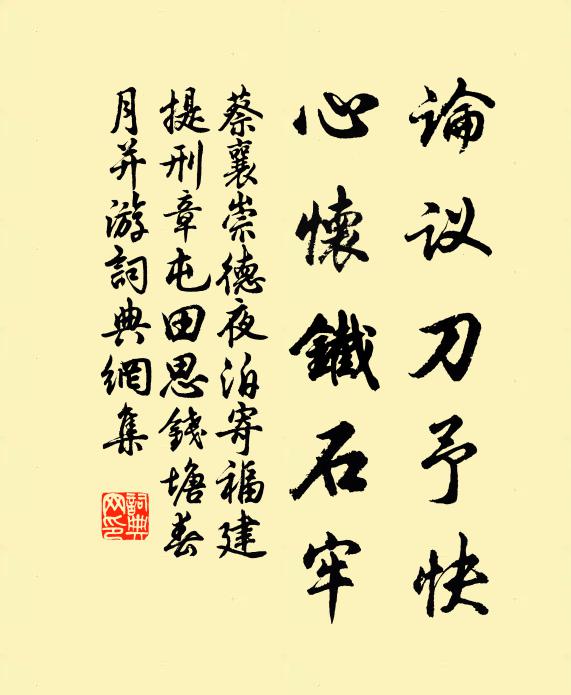 論议刀予快
心懷鐵石牢
蔡襄崇德夜泊寄福建
提刑章屯田思錢塘春
月并游詞典網集
詞典
网印